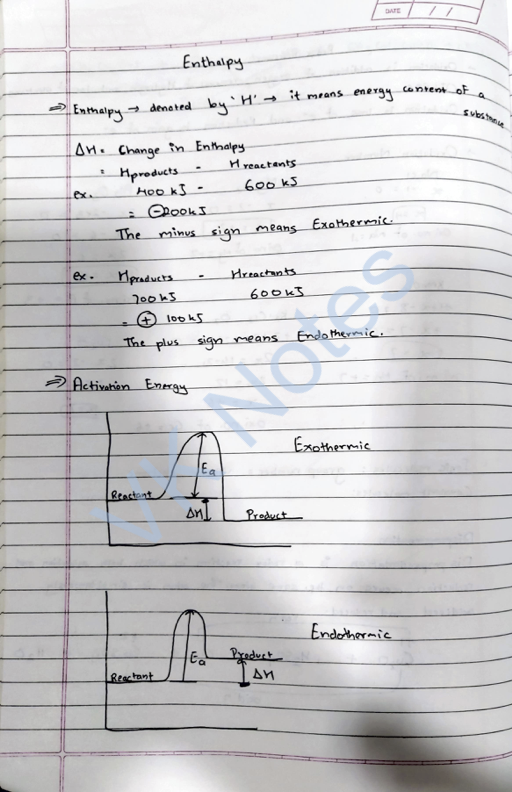 DATE / /
Enthalpy
⇒ Enthalpy → denoted by 'H' → it means energy content of a
substance
ΔH = Change in Enthalpy
= Hproducts - Hreactants
ex. 400 kJ - 600 kJ
= ⊖200kJ
The minus sign means Exothermic.
ex. Hproducts - Hreactants
700 kJ 600 kJ
= ⊕ 100 kJ
The plus sign means Endothermic.
⇒ Activation Energy
Exothermic
Ea
Reactant
ΔH Product
Endothermic
Ea Product
Reactant ΔH
VK Notes